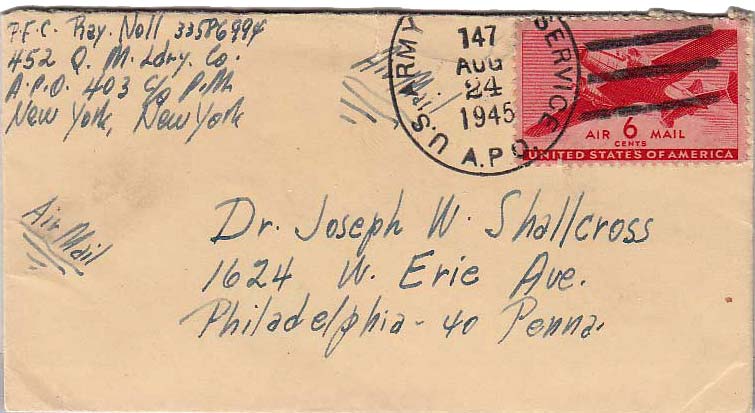 P.F.C. Ray. Noll 33586994
452 Q. M. Ldry. Co.
A.P.O. 403 c/o P.M.
New York, New York
Air Mail
U.S. ARMY SERVICE A.P.O.
147
AUG
24
1945
AIR 6 MAIL
CENTS
UNITED STATES OF AMERICA
Air Mail
Dr. Joseph W. Shallcross
1624 W. Erie Ave.
Philadelphia - 40 Penna.